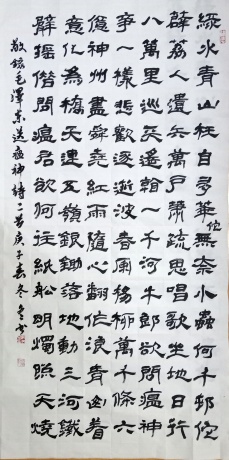 綠水青山枉自多華佗無奈小蟲何千邨佗
薜荔人遺矢萬戶蕭疏鬼唱歌坐地日行
八萬里巡天遙看一千河牛郎欲問瘟神
事一樣悲歡逐逝波春風楊柳萬千條六
億神州盡舜堯紅雨隨心翻作浪青山着
意化為橋天連五嶺銀鋤落地動三河鐵
臂摇借問瘟君欲何往紙船明燭照天燒
敬錄毛澤東送瘟神詩二首庚子春冬書